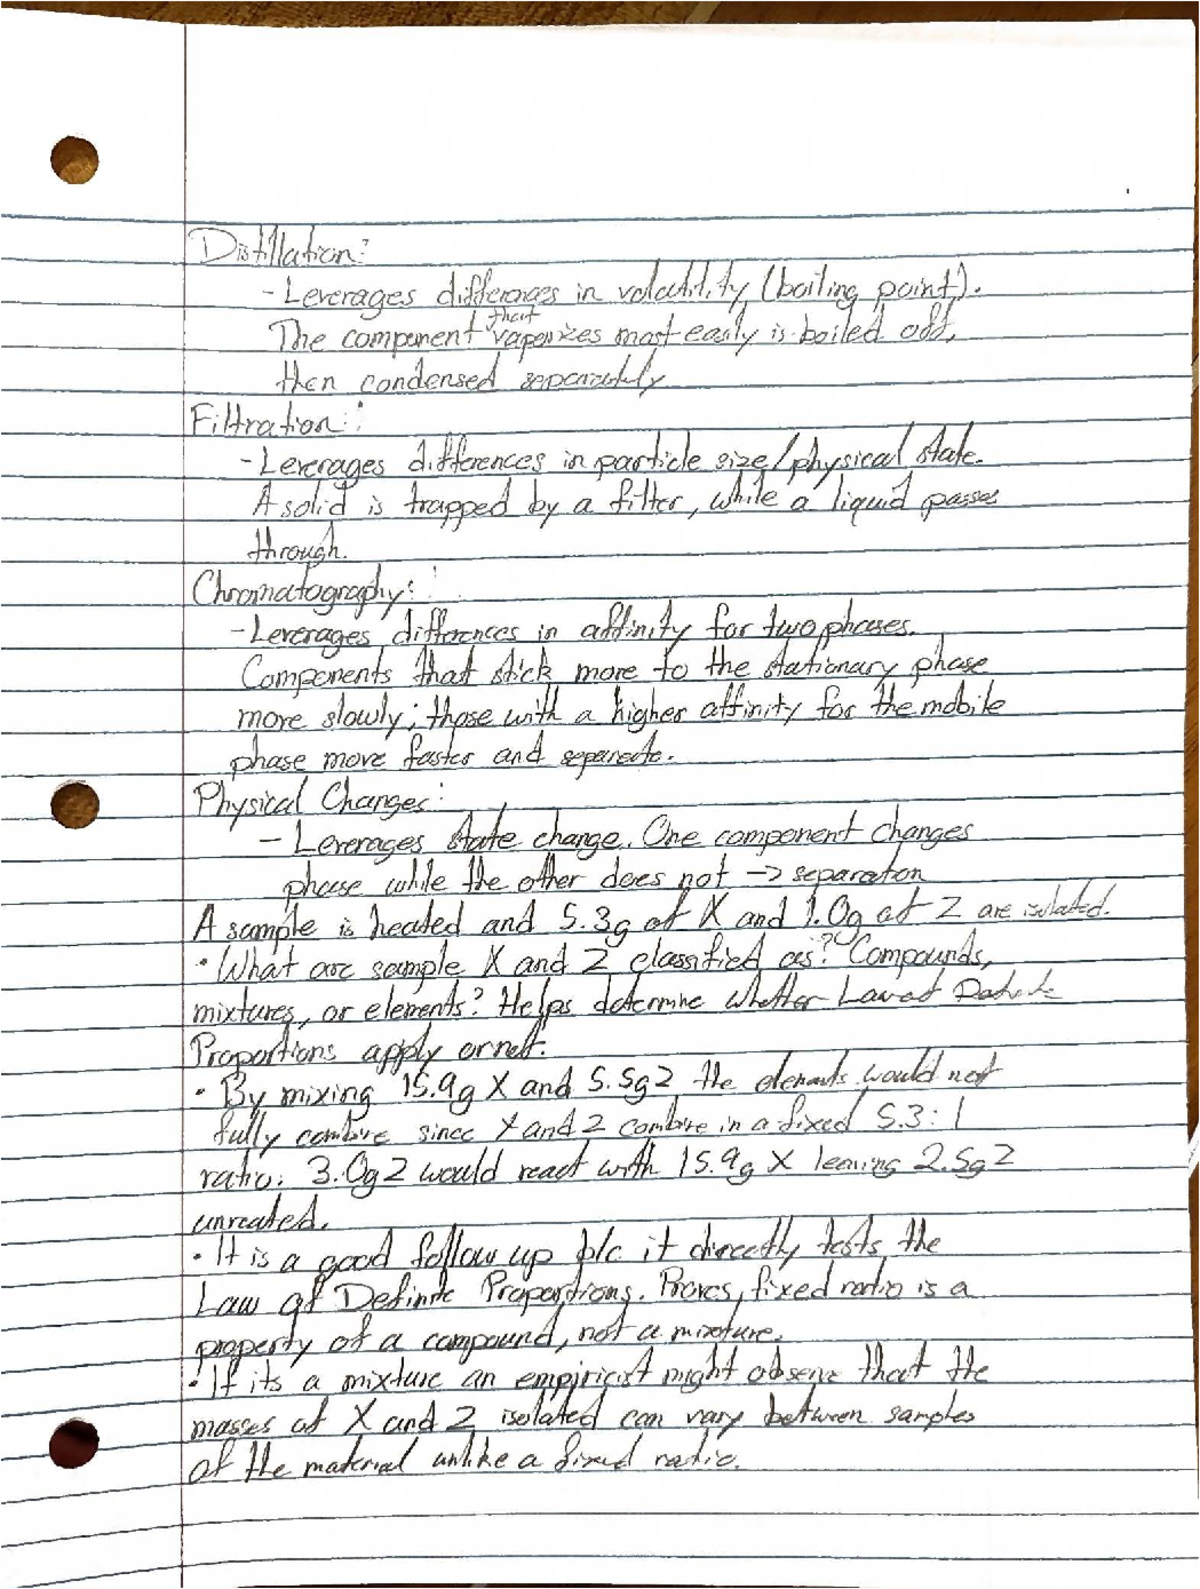 Distillation:
- Leverages differences in volatility (boiling point).
that
The component vaporizes most easily is boiled off,
then condensed separately
Filtration:
- Leverages differences in particle size/physical state.
A solid is trapped by a filter, while a liquid passes
through.
Chromatography:
- Leverages differences in affinity for two phases.
Components that stick more to the stationary phase
more slowly; those with a higher affinity for the mobile
phase move faster and separate.
Physical Changes:
- Leverages state change. One component changes
phase while the other does not -> separation
A sample is heated and 5.3g of X and 1.0g of Z are isolated.
• What are sample X and Z classified as? Compounds,
mixtures, or elements? Helps determine whether Law of
Proportions apply or not.
• By mixing 15.9g X and 5.5g Z the elements would not
fully combine since X and Z combine in a fixed 5.3:1
ratio. 3.0g Z would react with 15.9g X leaving 2.5g Z
unreated.
• It is a good follow up b/c it directly tests the
Law of Definite Proportions. Proves fixed ratio is a
property of a compound, not a mixture.
• If its a mixture an empiricist might observe that the
masses of X and Z isolated can vary between samples
of the material unlike a fixed ratio.